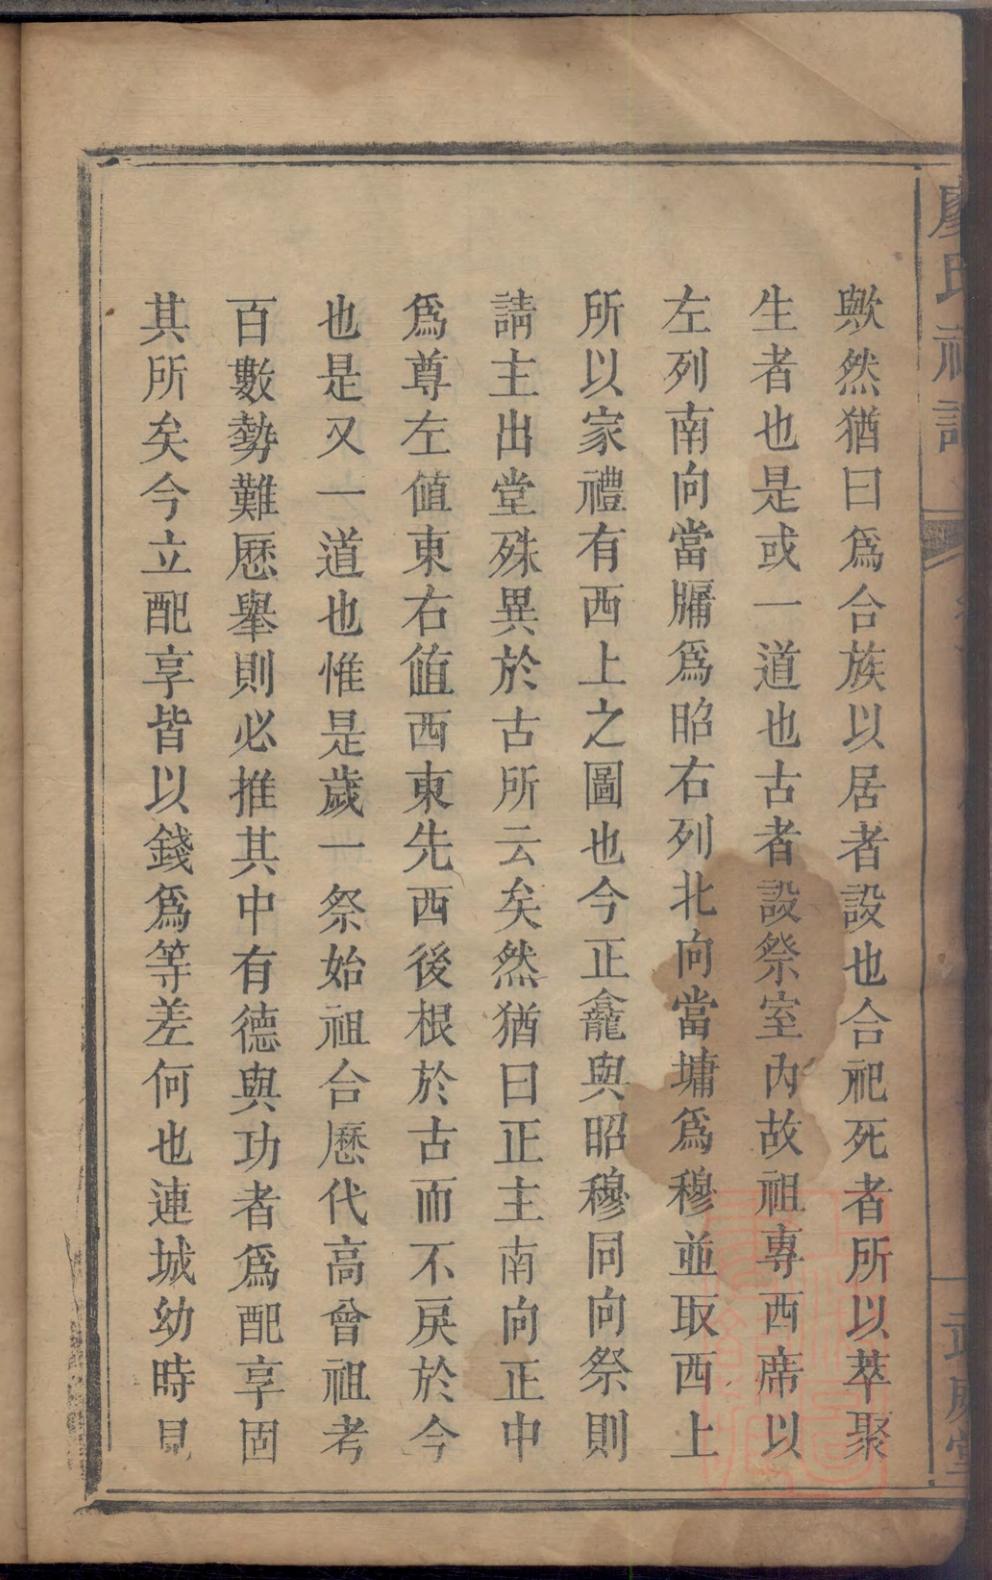 歟然猶曰爲合族以居者設也合祀死者所以萃聚
生者也是或一道也古者設祭室內故祖專西席以
左列南向當牖爲昭右列北向當墉爲穆並取西上
所以家禮有西上之圖也今正龕與昭穆同向祭則
請主出堂殊異於古所云矣然猶曰正主南向正中
爲尊左値東右値西東先西後根於古而不戾於今
也是又一道也惟是歲一祭始祖合歷代高曾祖考
百數勢難歷舉則必推其中有德與功者爲配享固
其所矣今立配享皆以錢爲等差何也連城幼時見